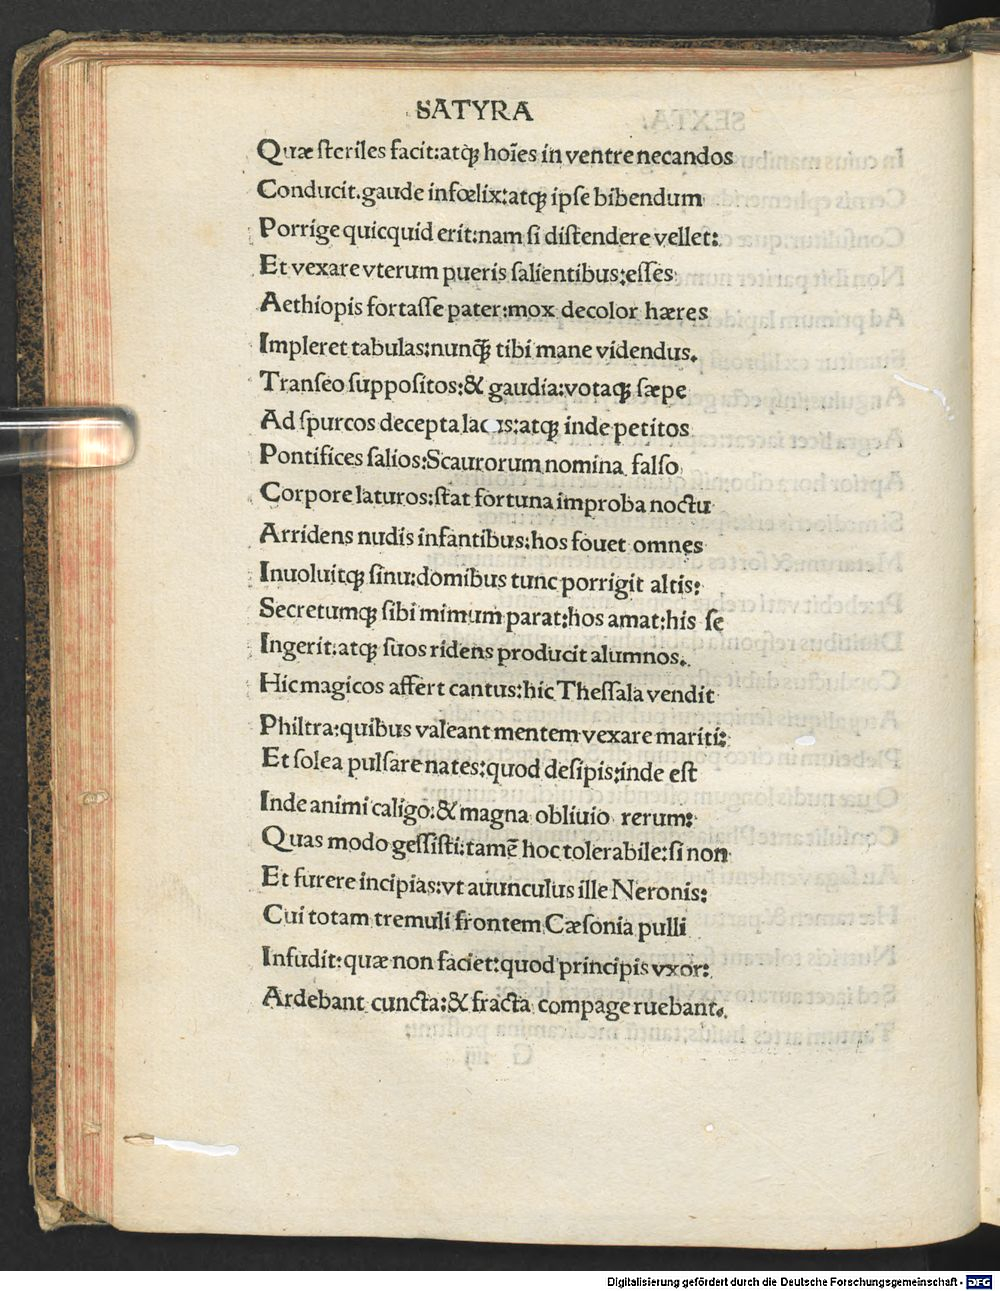 SATYRA
Quæ ſteriles facit:atqꝫ hoīes in ventre necandos
Conducit.gaude infœlix:atqꝫ ipſe bibendum
Porrige quicquid erit:nam ſi diſtendere vellet:
Et vexare vterum pueris ſalientibus:eſſes
Aethiopis fortaſſe pater:mox decolor hæres
Impleret tabulas:nunꝙ̃ tibi mane videndus.
Tranſeo ſuppoſitos:& gaudia:votaqꝫ ſæpe
Ad ſpurcos decepta lacus:atqꝫ inde petitos
Pontifices ſalios:Scaurorum nomina falſo
Corpore laturos:ſtat fortuna improba noctu
Arridens nudis infantibus:hos fouet omnes
Inuoluitqꝫ ſinu:domibus tunc porrigit altis:
Secretumqꝫ ſibi mimum parat:hos amat:his ſe
Ingerit:atqꝫ ſuos ridens producit alumnos.
Hic magicos affert cantus:hic Theſſala vendit
Philtra:quibus valeant mentem vexare mariti:
Et ſolea pulſare nates:quod deſipis:inde eſt
Inde animi caligo:& magna obliuio rerum:
Quas modo geſſiſti:tamē hoc tolerabile:ſi non
Et furere incipias:vt auunculus ille Neronis:
Cui totam tremuli frontem Cæſonia pulli
Infudit:quæ non faciet:quod principis vxor:
Ardebant cuncta:& fracta compage ruebant.
Digitalisierung gefördert durch die Deutsche Forschungsgemeinschaft - DFG